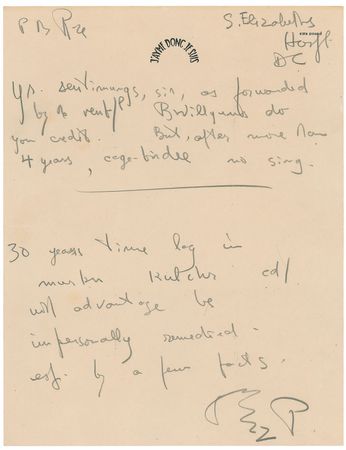 P B R
S. Elizabeths
Hosp.
DC
J'AYME DONC JE SUIS
Yr. sentiments, sir, as forwarded
by
do
you credit. But, after more than
4 years, cage-birdee no sing.
30 years time lag in
cd/
with advantage be
impersonally remedied -
esp. by a few facts.
P